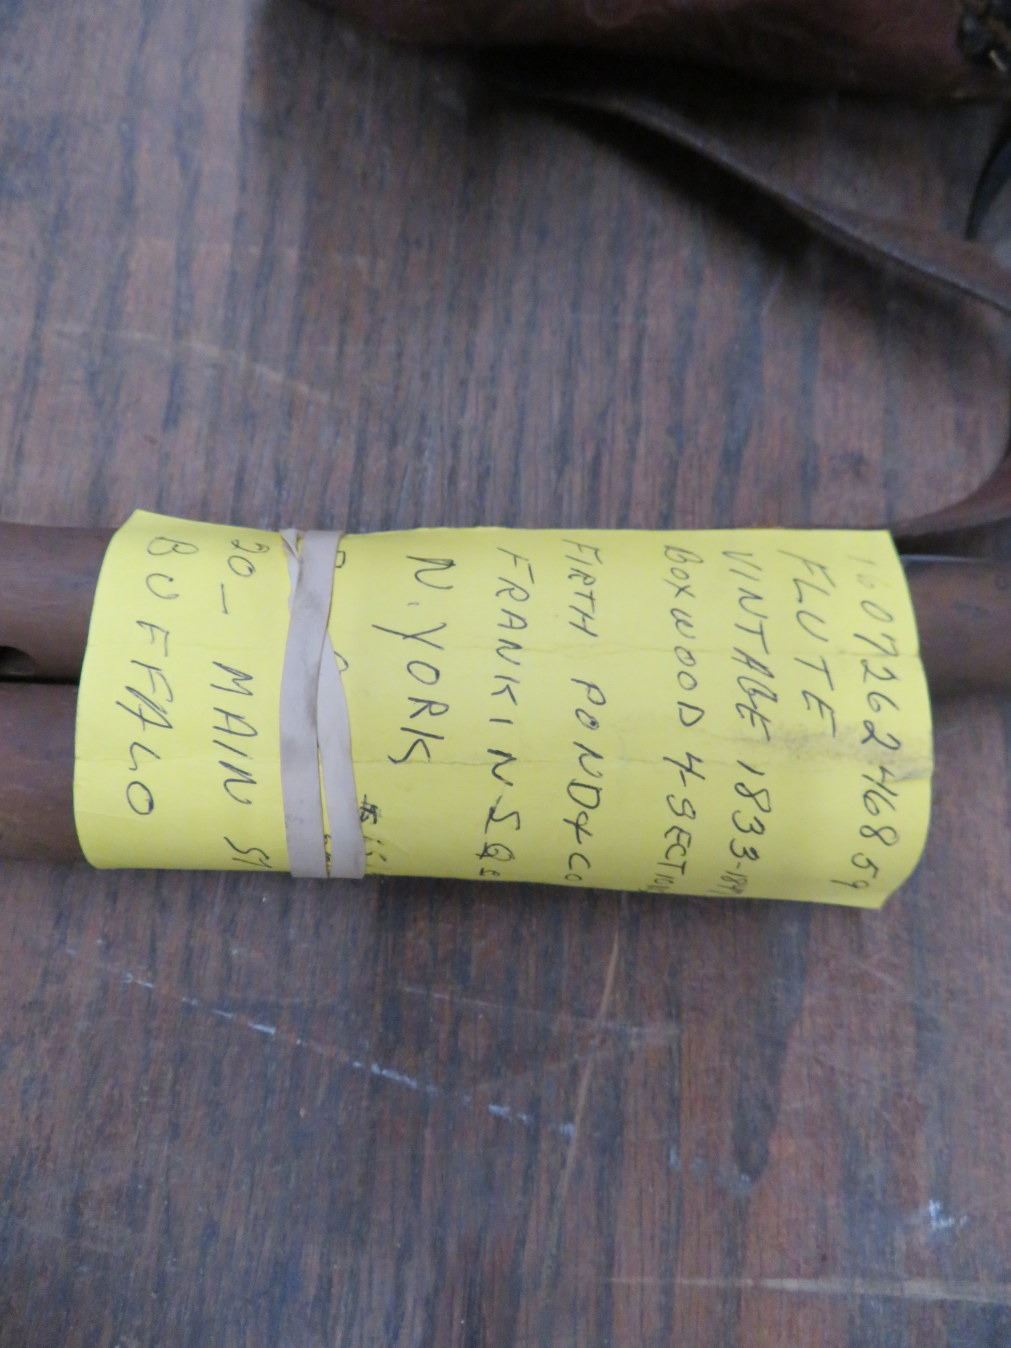 160726246859
FLUTE
VINTAGE 1833-
BOXWOOD 4-SECTION
FIRTH POND & CO
FRANKIN SQE
N. YORK
20- MAIN ST
BUFFALO